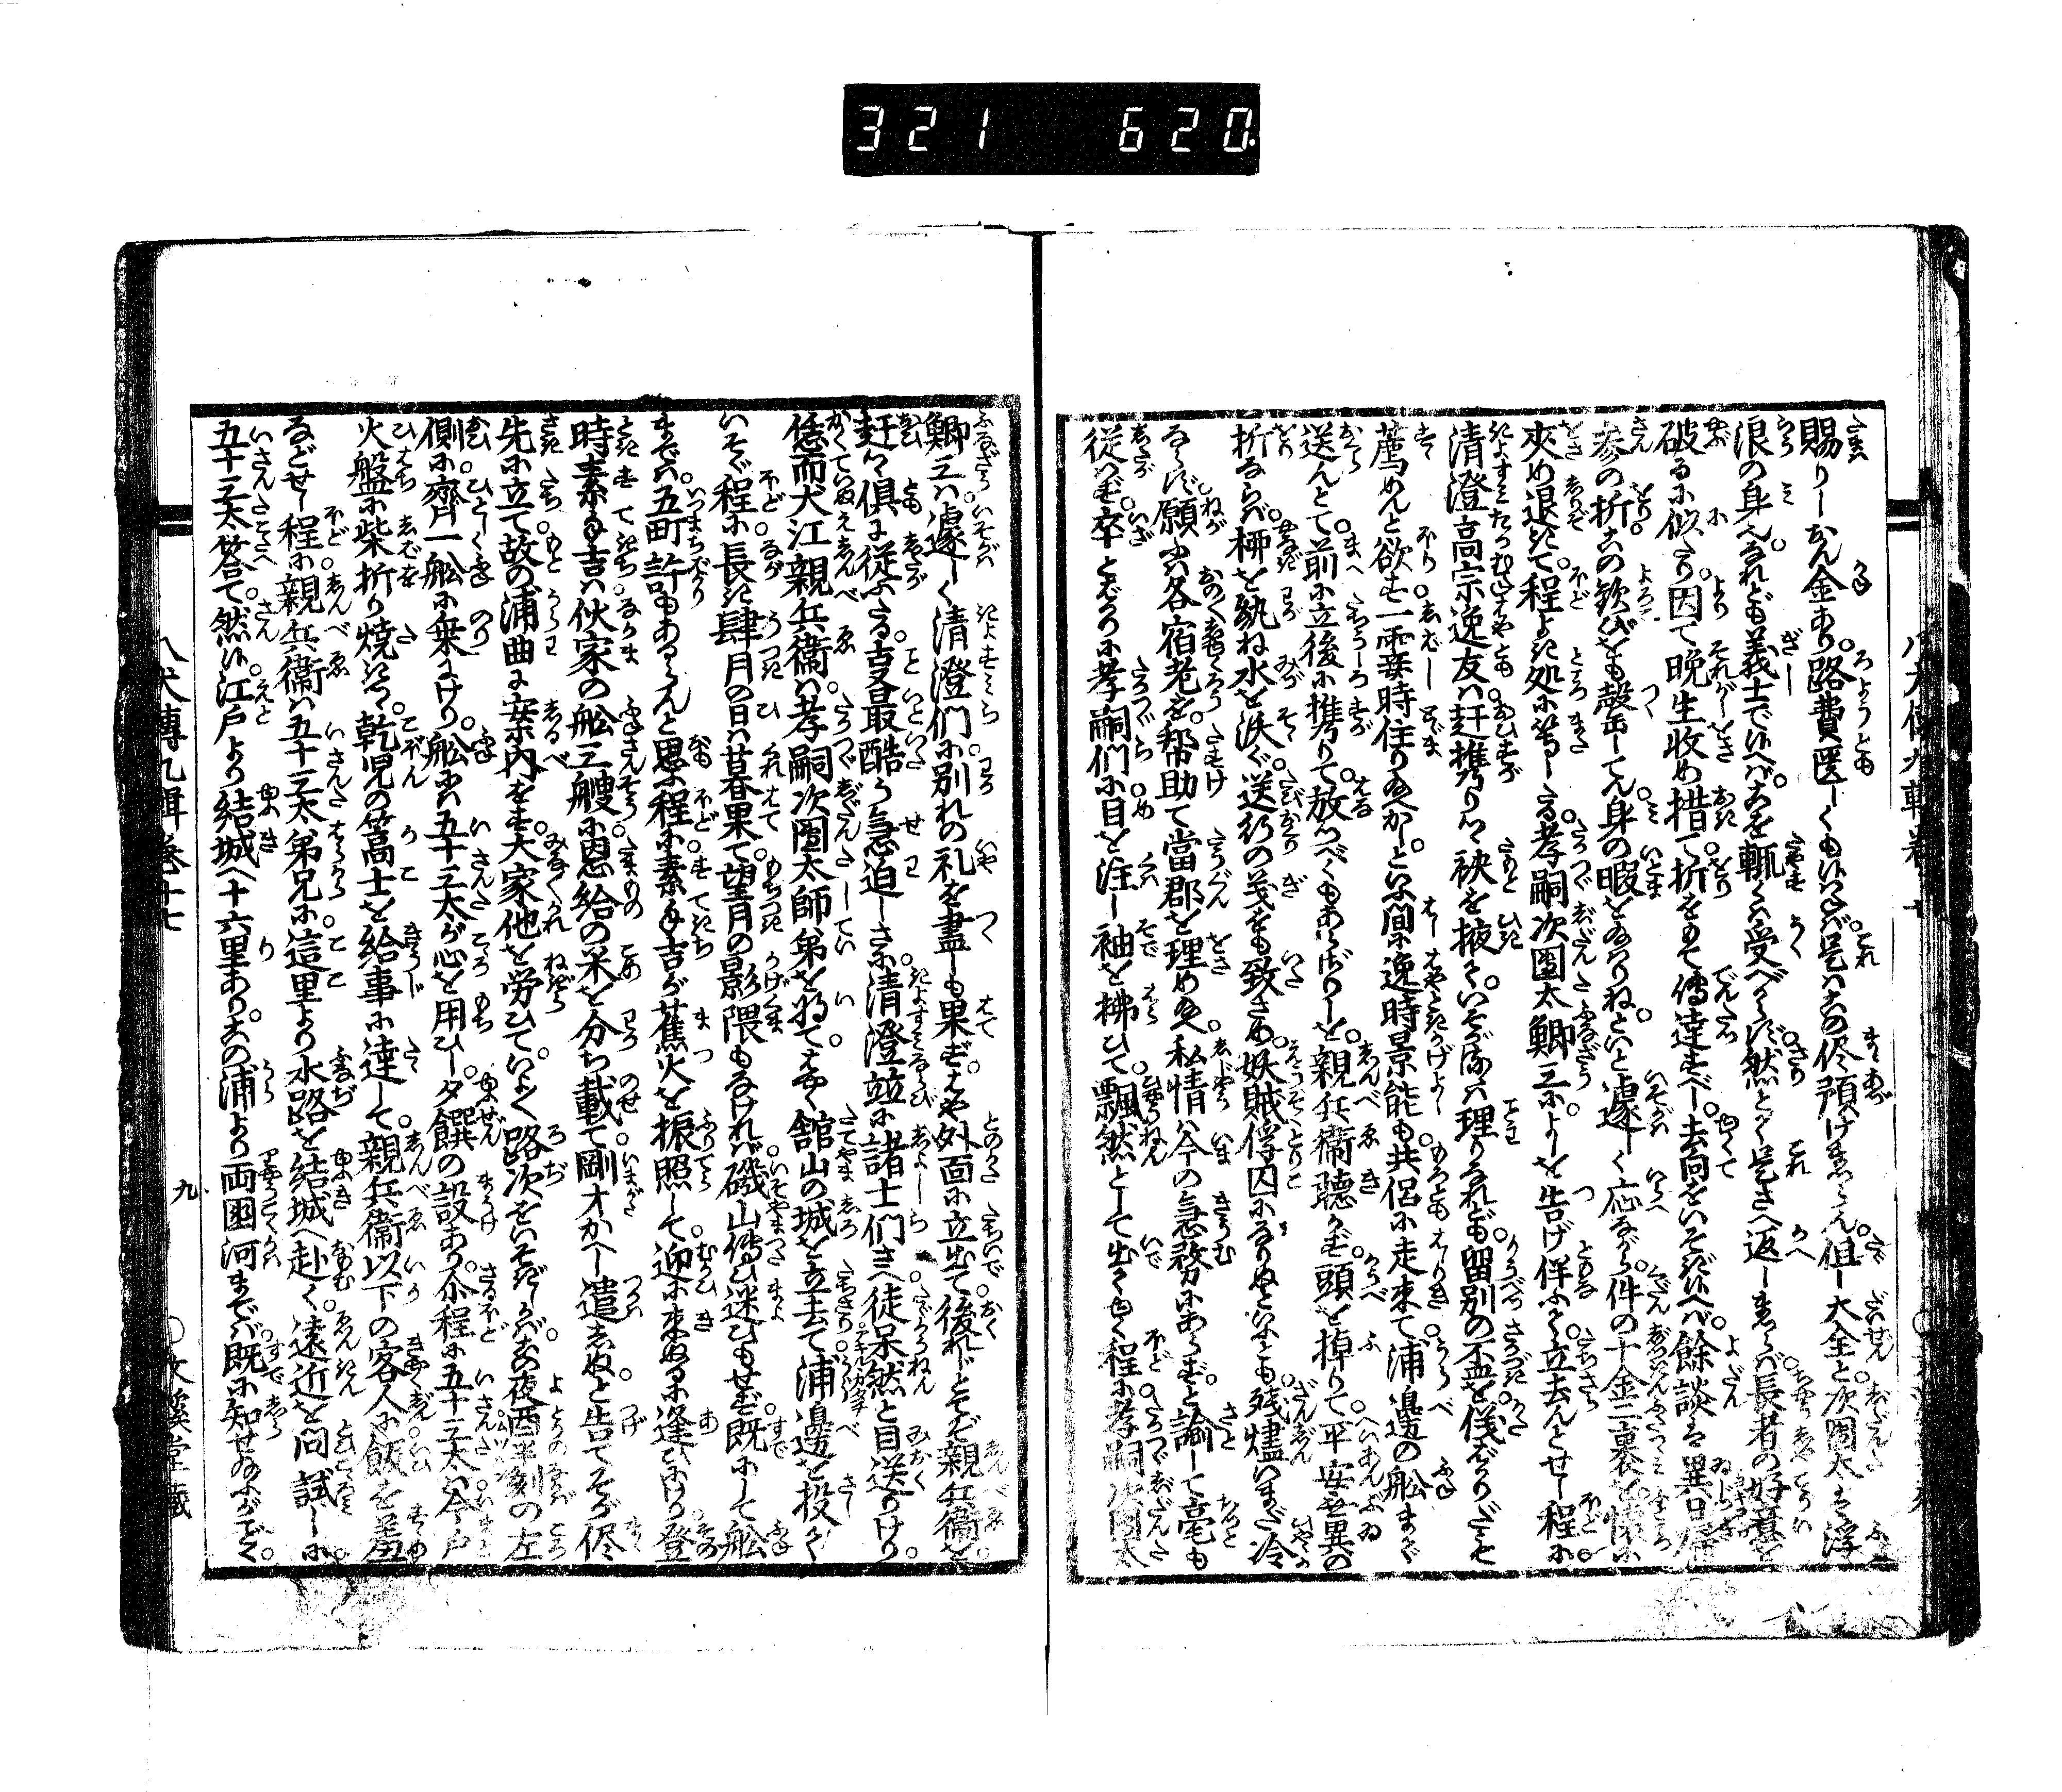 321 620
賜りしおん金あり。路費匱しくも候はねば是はこの侭預け奉らん。但し大金と。次団太は浮
浪の身にあれども義士で候へば。これを輒くは受べからず。然とて是さへ返しまゐらば。長者の好意を
破るに似たり。因て晩生收め措て。折をもて傳達すべし。去向をいそぎ候へば。餘談は異日
参の折この歓びをも罄してん。身の暇を給りね。といと遽しく応ながら。件の千金二裹を懐に
夾め退きて。程よき処に等したる。孝嗣次団太鯽三に。よしを告げ伴ふて。立去んとせし程に
清澄高宗逸友は。赶携りつゝ袂を掖て。いそがるは理りなれども。留別の盃を。侑ばかりだにせ
薦めんと欲す。一霎時住り給へかし。といふ間に逸時景能も。共侶に走来て。浦邊の舩まで
送んとて。前に立後に携りて。放つべくもあらざりしを。親兵衛聴かず。頭を掉りて。平安無異の
折ならば。柳を綰ね水を沃ぐ。送行の義をも致さめ。妖賊俘囚になりぬといへども。残燼いまだ冷
ならず。願ふは各宿老を。幇助て當郡を理め給へ。私情は今の急務にあらず。と諭して毫も
従はず。卒とばかりに孝嗣們に。目を注し袖を拂ひて。飄然として出てゆく程に。孝嗣次団太
鯽三は遽しく。清澄們に別れの礼を盡しも果ず。はや外面に立出て。後れじとぞ親兵衛を。
赶つゝ倶に従ふたる。言最酷う急迫しさに。清澄竝に諸士們さへ。徒呆然と目送りけり。
恁而犬江親兵衛は。孝嗣次團太師弟を将て。はやく舘山の城を立去て。浦邊を投て
いそぐ程に。長き肆月の日は暮果て。望月の影隈もなければ。磯山傳ひ迷ひもせず。既にして舩
までは。五町許もあらんと思ふ程に。素手吉が蕉火を振照して。迎に来ぬるに逢ひにけり。登
時素手吉は。伙家の舩三艘に。恩給の米を分ち載て。剛才かへし遣しぬ。と告てそが侭
先に立て。故の浦曲に案内をす。大家他を労ひて。いよゝ路次をいそぎしかば。その夜酉半刻の左
側に。齊一舩に乗にけり。舩には五十三太が心を用ひし。夕饌の設あり。尓程に五十三太は。今戸
火盤に柴折り焼きつゝ。乾児の篙士を給事に達して。親兵衛以下の客人に。飯を羞め
などせし程に。親兵衛は五十三太弟兄に。這里より水路を結城へ赴く。遠近を問試しに。
五十三太答て。然候。江戸より結城へ十六里あり。この浦より両国河までは。既に知せ給ふがごとく。
八犬傳九輯巻十七
九
文溪堂藏